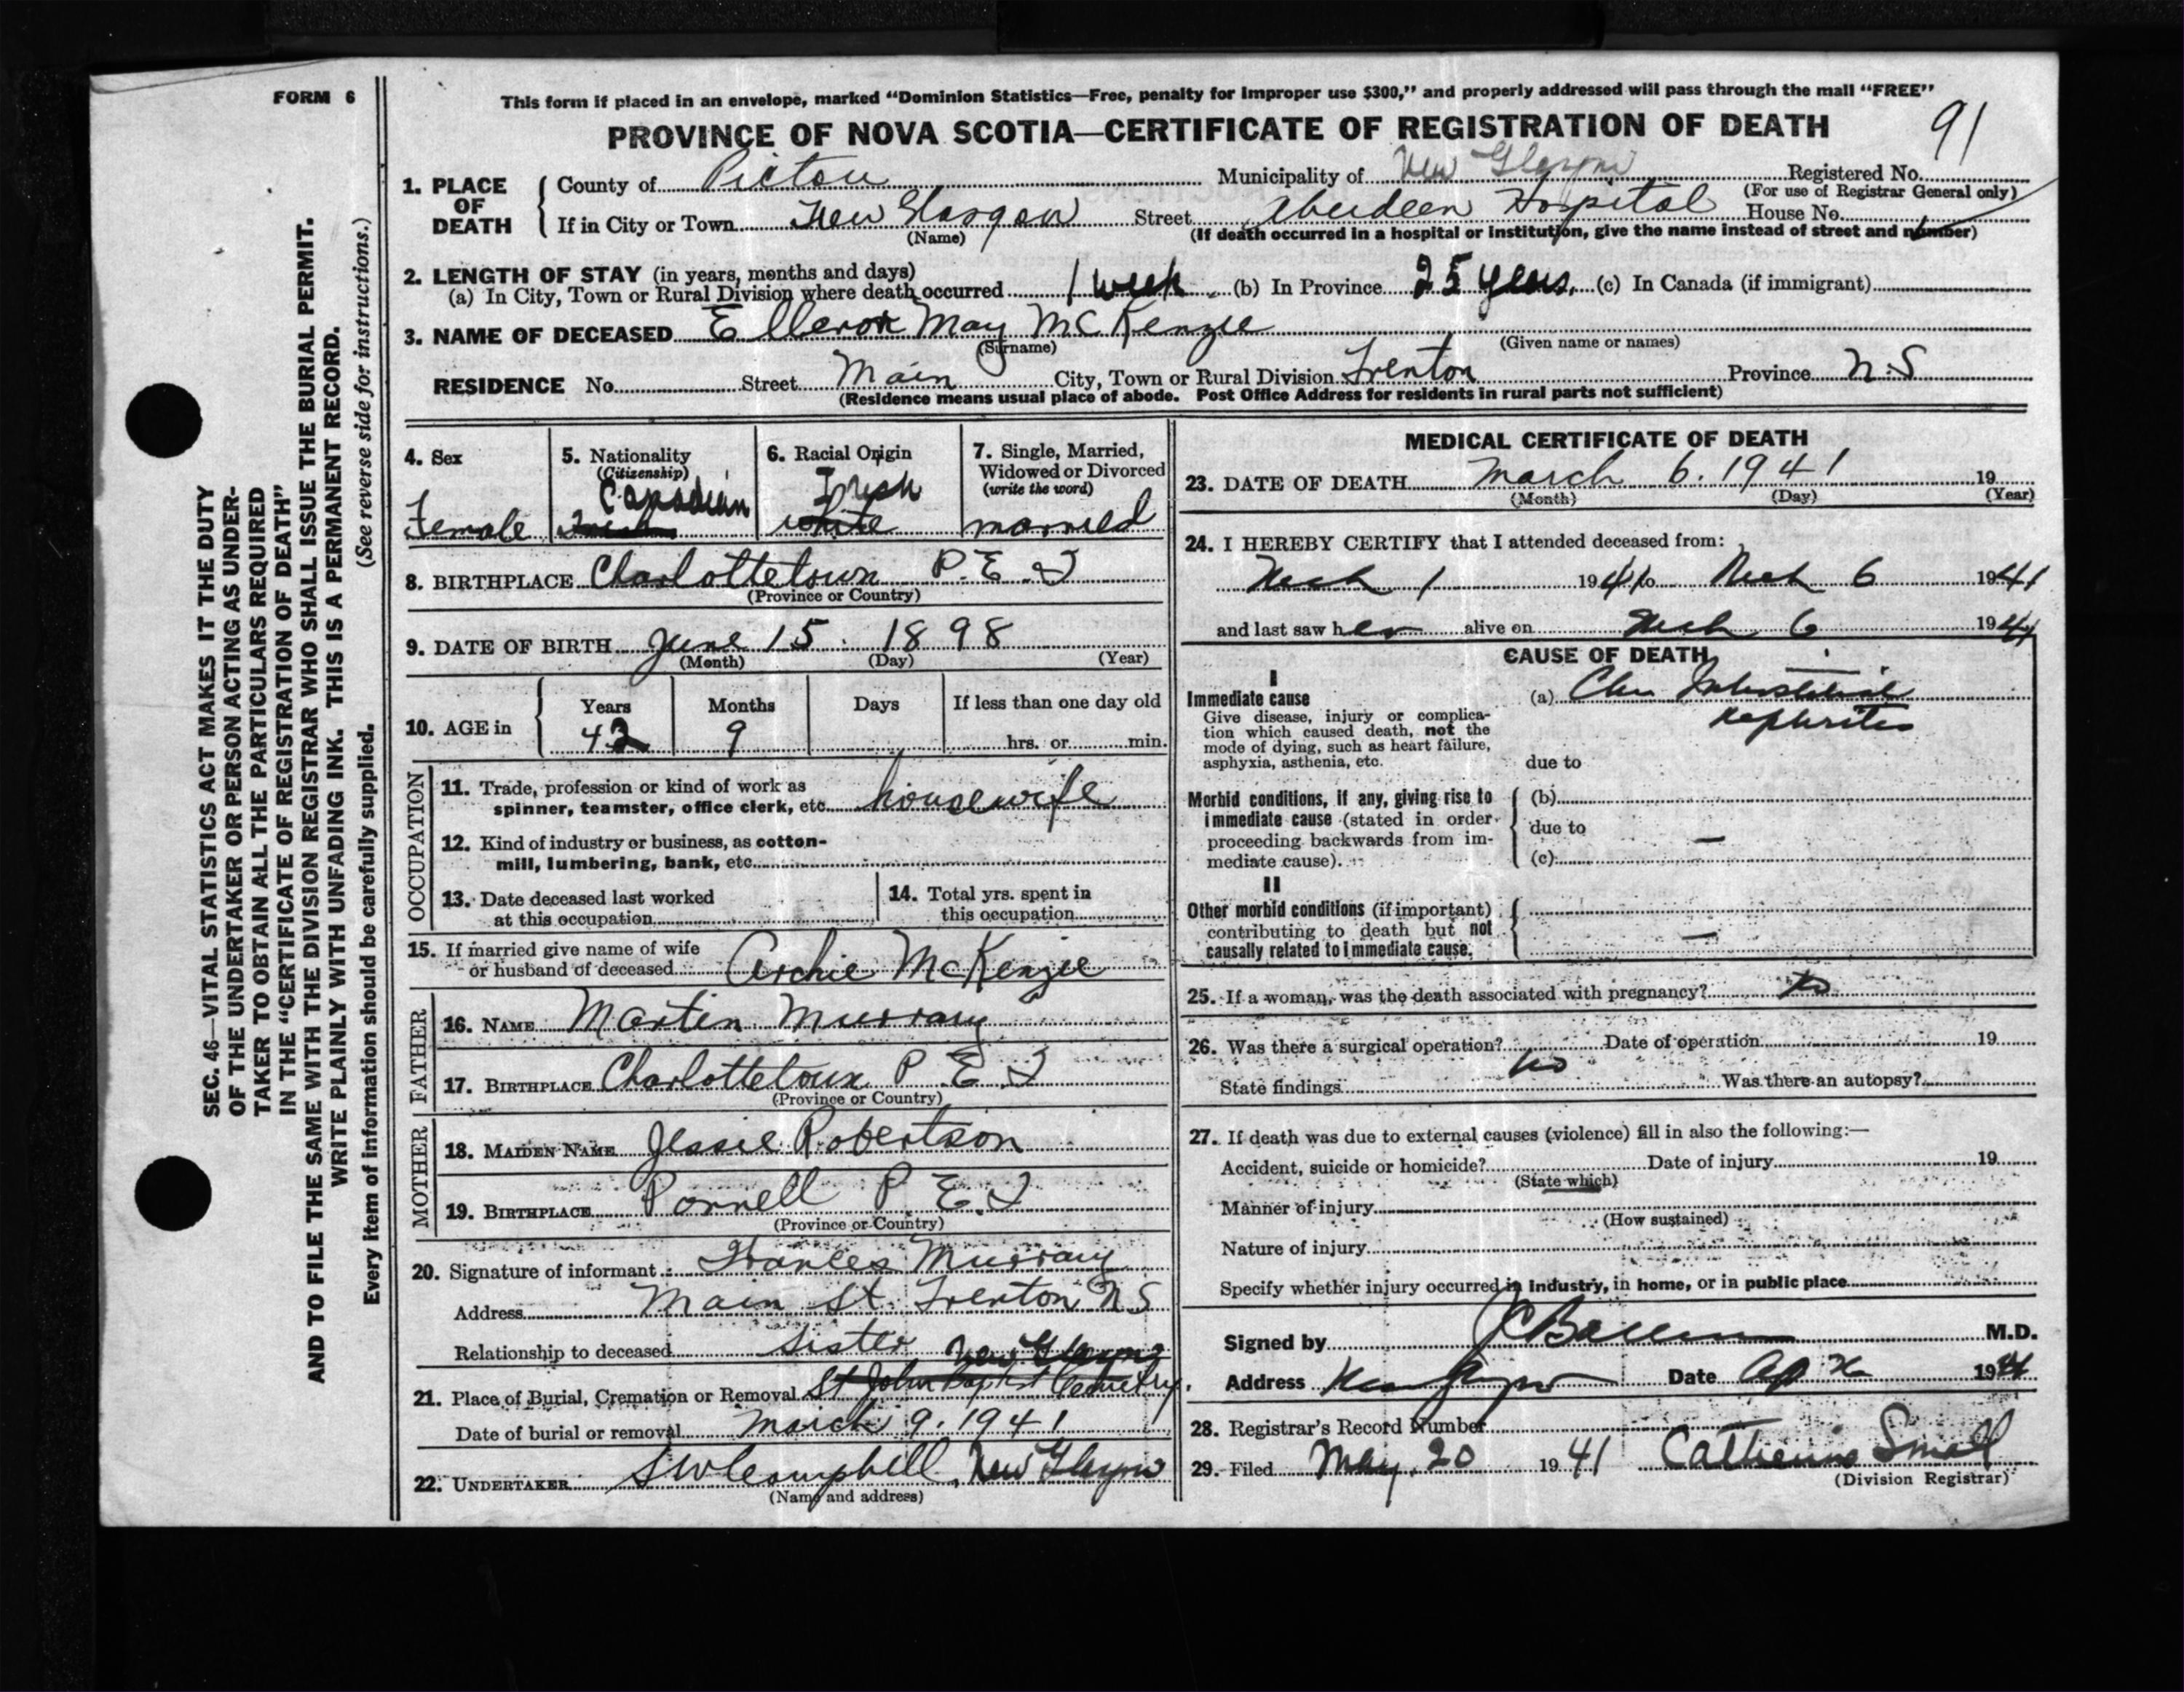 FORM 6
This form if placed in an envelope, marked "Dominion Statistics—Free, penalty for improper use $300," and properly addressed will pass through the mail "FREE"
PROVINCE OF NOVA SCOTIA—CERTIFICATE OF REGISTRATION OF DEATH
91
SEC. 46—VITAL STATISTICS ACT MAKES IT THE DUTY
OF THE UNDERTAKER OR PERSON ACTING AS UNDER-
TAKER TO OBTAIN ALL THE PARTICULARS REQUIRED
IN THE "CERTIFICATE OF REGISTRATION OF DEATH"
AND TO FILE THE SAME WITH THE DIVISION REGISTRAR WHO SHALL ISSUE THE BURIAL PERMIT.
WRITE PLAINLY WITH UNFADING INK. THIS IS A PERMANENT RECORD.
Every item of information should be carefully supplied. (See reverse side for instructions.)
1. PLACE OF DEATH
County of Pictou Municipality of New Glasgow Registered No.
(For use of Registrar General only)
If in City or Town New Glasgow Street Aberdeen Hospital House No.
(Name) (If death occurred in a hospital or institution, give the name instead of street and number)
2. LENGTH OF STAY (in years, months and days)
(a) In City, Town or Rural Division where death occurred 1 week (b) In Province 25 years. (c) In Canada (if immigrant)
3. NAME OF DECEASED May McKenzie
(Surname) (Given name or names)
RESIDENCE No. Street Main City, Town or Rural Division Trenton Province N.S
(Residence means usual place of abode. Post Office Address for residents in rural parts not sufficient)
4. Sex
Female
5. Nationality
(Citizenship)
Canadian
6. Racial Origin
Irish
white
7. Single, Married,
Widowed or Divorced
(write the word)
married
8. BIRTHPLACE Charlottetown P.E.I
(Province or Country)
9. DATE OF BIRTH June 15. 1898
(Month) (Day) (Year)
10. AGE in
Years Months Days If less than one day old
42 9 hrs. or min.
OCCUPATION
11. Trade, profession or kind of work as
spinner, teamster, office clerk, etc. housewife
12. Kind of industry or business, as cotton-
mill, lumbering, bank, etc.
13. Date deceased last worked
at this occupation
14. Total yrs. spent in
this occupation
15. If married give name of wife
or husband of deceased Archie McKenzie
FATHER
16. NAME Martin Murray
17. BIRTHPLACE Charlottetown P.E.I
(Province or Country)
MOTHER
18. MAIDEN NAME Jessie Robertson
19. BIRTHPLACE P.E.I
(Province or Country)
20. Signature of informant Frances Murray
Address Main St. Trenton N S
Relationship to deceased Sister
New Glasgow
21. Place of Burial, Cremation or Removal St John Baptist Cemetry.
Date of burial or removal March 9. 1941
22. UNDERTAKER S W Campbell, New Glasgow
(Name and address)
MEDICAL CERTIFICATE OF DEATH
23. DATE OF DEATH March 6. 1941 19
(Month) (Day) (Year)
24. I HEREBY CERTIFY that I attended deceased from:
Mch 1 1941 to Mch 6 1941
and last saw her alive on Mch 6 1941
CAUSE OF DEATH
I
Immediate cause
Give disease, injury or complica-
tion which caused death, not the
mode of dying, such as heart failure,
asphyxia, asthenia, etc.
(a) Chr Interstitial
nephritis
due to
Morbid conditions, if any, giving rise to
immediate cause (stated in order
proceeding backwards from im-
mediate cause).
(b)
due to —
(c)
II
Other morbid conditions (if important)
contributing to death but not
causally related to immediate cause.
—
25. If a woman, was the death associated with pregnancy? No
26. Was there a surgical operation? No Date of operation 19
State findings Was there an autopsy?
27. If death was due to external causes (violence) fill in also the following:—
Accident, suicide or homicide? Date of injury 19
(State which)
Manner of injury
(How sustained)
Nature of injury
Specify whether injury occurred in industry, in home, or in public place
Signed by M.D.
Address New Glasgow Date 1941
28. Registrar's Record Number
29. Filed May 20 1941 Catherine Small
(Division Registrar)